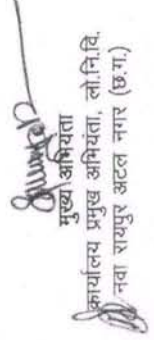 मुख्य अभियंता
कार्यालय प्रमुख अभियंता, लो.नि.वि.
नवा रायपुर अटल नगर (छ.ग.)